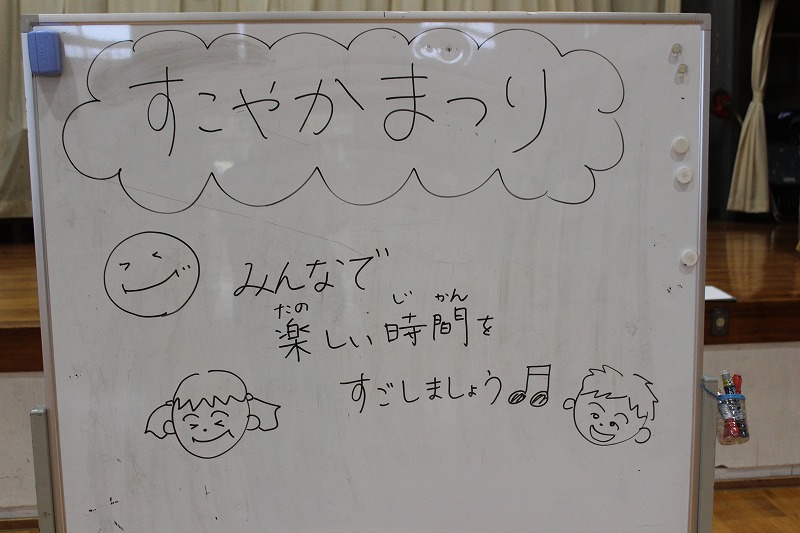 すこやかまつり
みんなで
楽しい時間を
すごしましょう♫